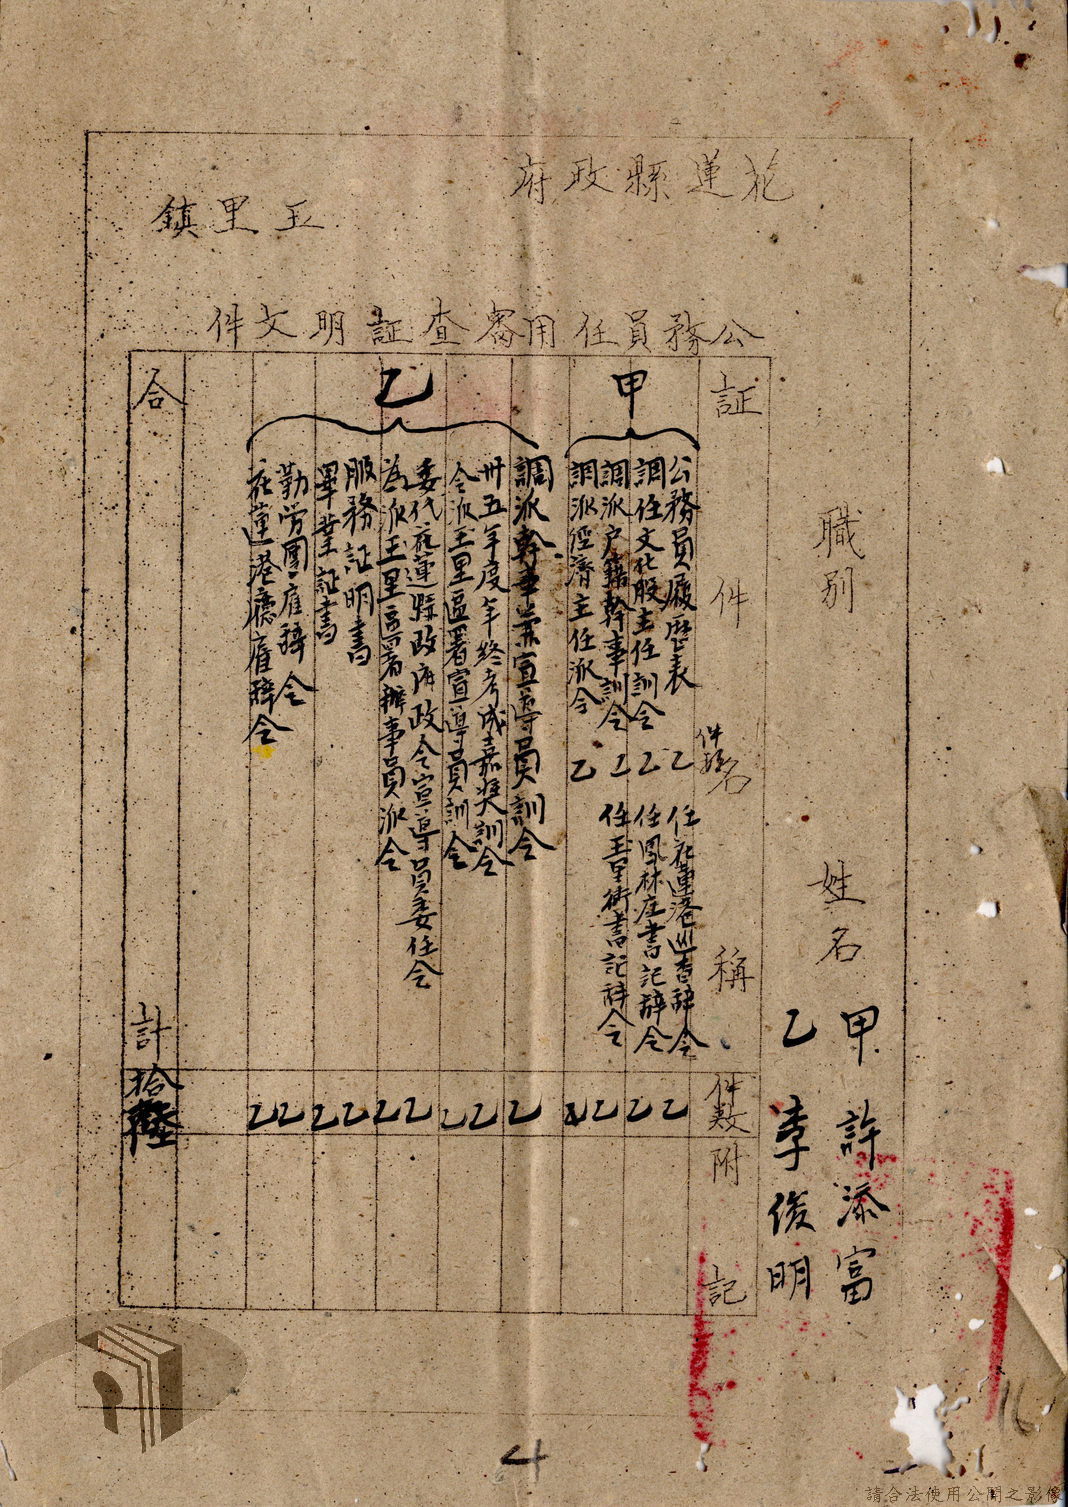 花蓮縣政府
玉里鎮
公務員任用審查証明文件
職別
姓名
甲 許添富
乙 李俊明
証件名稱
件数
附記
甲
公務員履歷表 乙 任花蓮港巡查辞令 乙
調任文化股主任訓令 乙 任鳳林庄書記辞令 乙
調派户籍幹事訓令 乙 任玉里街書記辞令 乙
調派經濟主任派令 乙
乙
調派幹事兼宣導員訓令 乙
卅五年度年終考成嘉奖訓令 乙
令派玉里區署宣導員訓令 乙
委代花蓮縣政府政令宣導員委任令 乙
為派玉里區署辦事員派令 乙
服務証明書 乙
畢業証書 乙
勤労團雇辞令 乙
花蓮港廳雇辞令 乙
合計 拾陸
4
請合法使用公開之影像